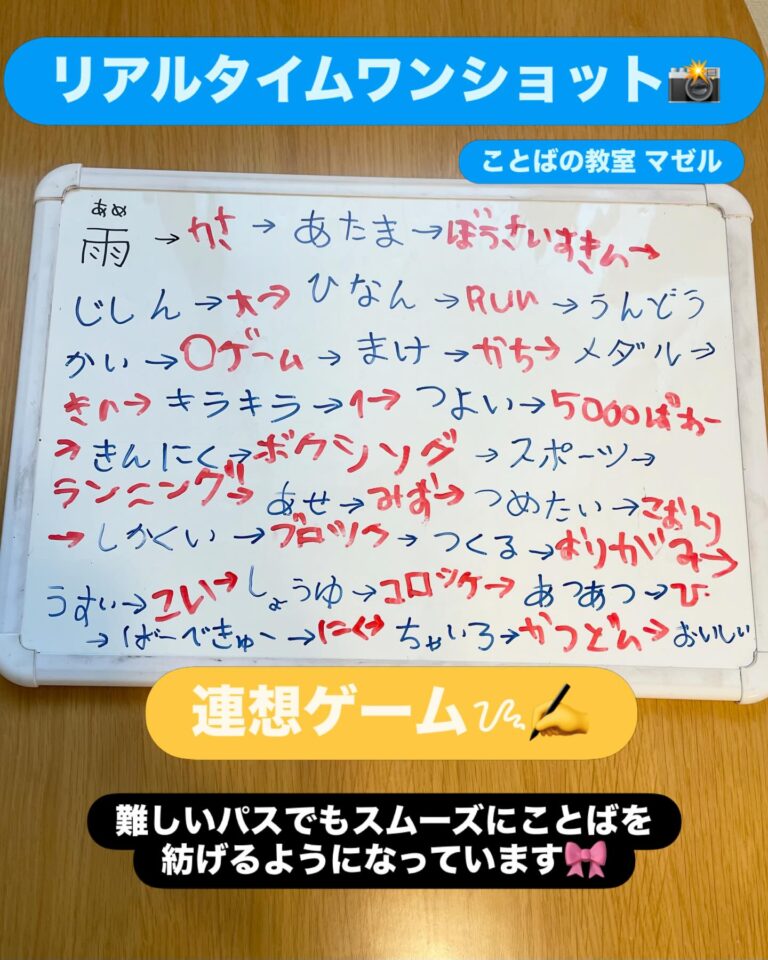 リアルタイムワンショット📸
ことばの教室 マゼル
あめ
雨→かさ→あたま→ぼうさいずきん→
じしん→大→ひなん→RUN→うんどう
かい→〇ゲーム→まけ→かち→メダル→
きん→キラキラ→1→つよい→5000ぱわー
→きんにく→ボクシング→スポーツ→
ランニング→あせ→みず→つめたい→こおり
→しかくい→ブロック→つくる→おりがみ→
うすい→こい→しょうゆ→コロッケ→あつあつ→ひ
→ばーべきゅー→にく→ちゃいろ→かつどん→おいしい
連想ゲーム
難しいパスでもスムーズにことばを
紡げるようになっています🎀